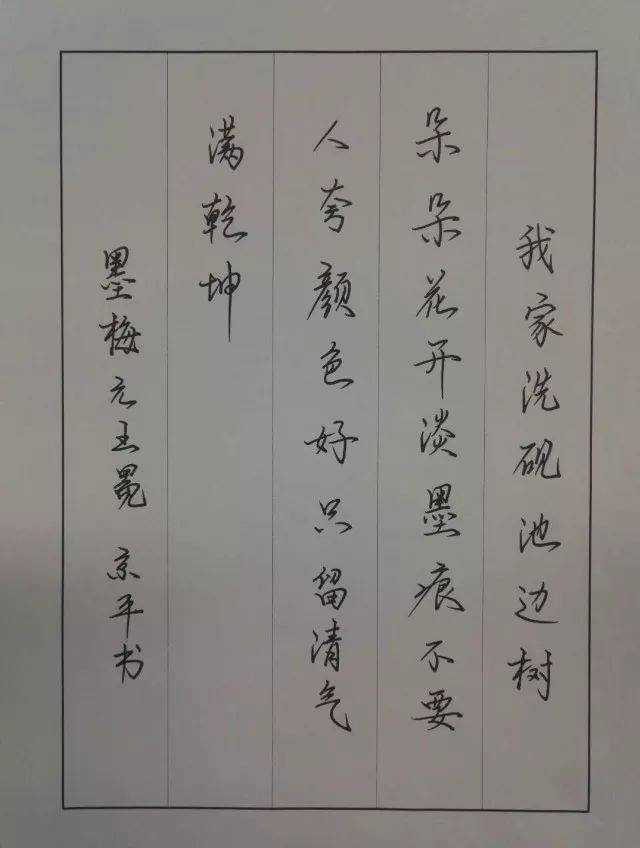 我家洗砚池边树
朵朵花开淡墨痕不要
人夸颜色好只留清气
满乾坤
墨梅元王冕 京平书